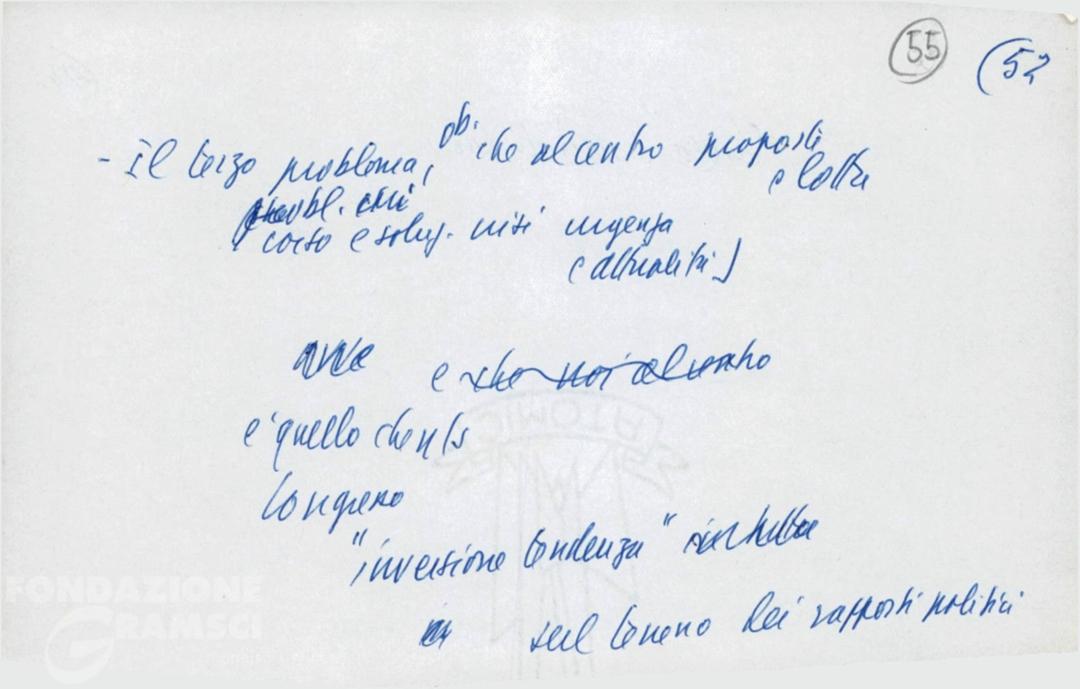 55 (52
- Il terzo problema, ob. che al centro proposte
e lotta
probl. crisi
corso e soluz. visi urgenza
e attualità]
e che noi al centro
e' quello che ns
Congresso
"inversione tendenza"
sul terreno dei rapporti politici
FONDAZIONE
GRAMSCI
ATOMIC